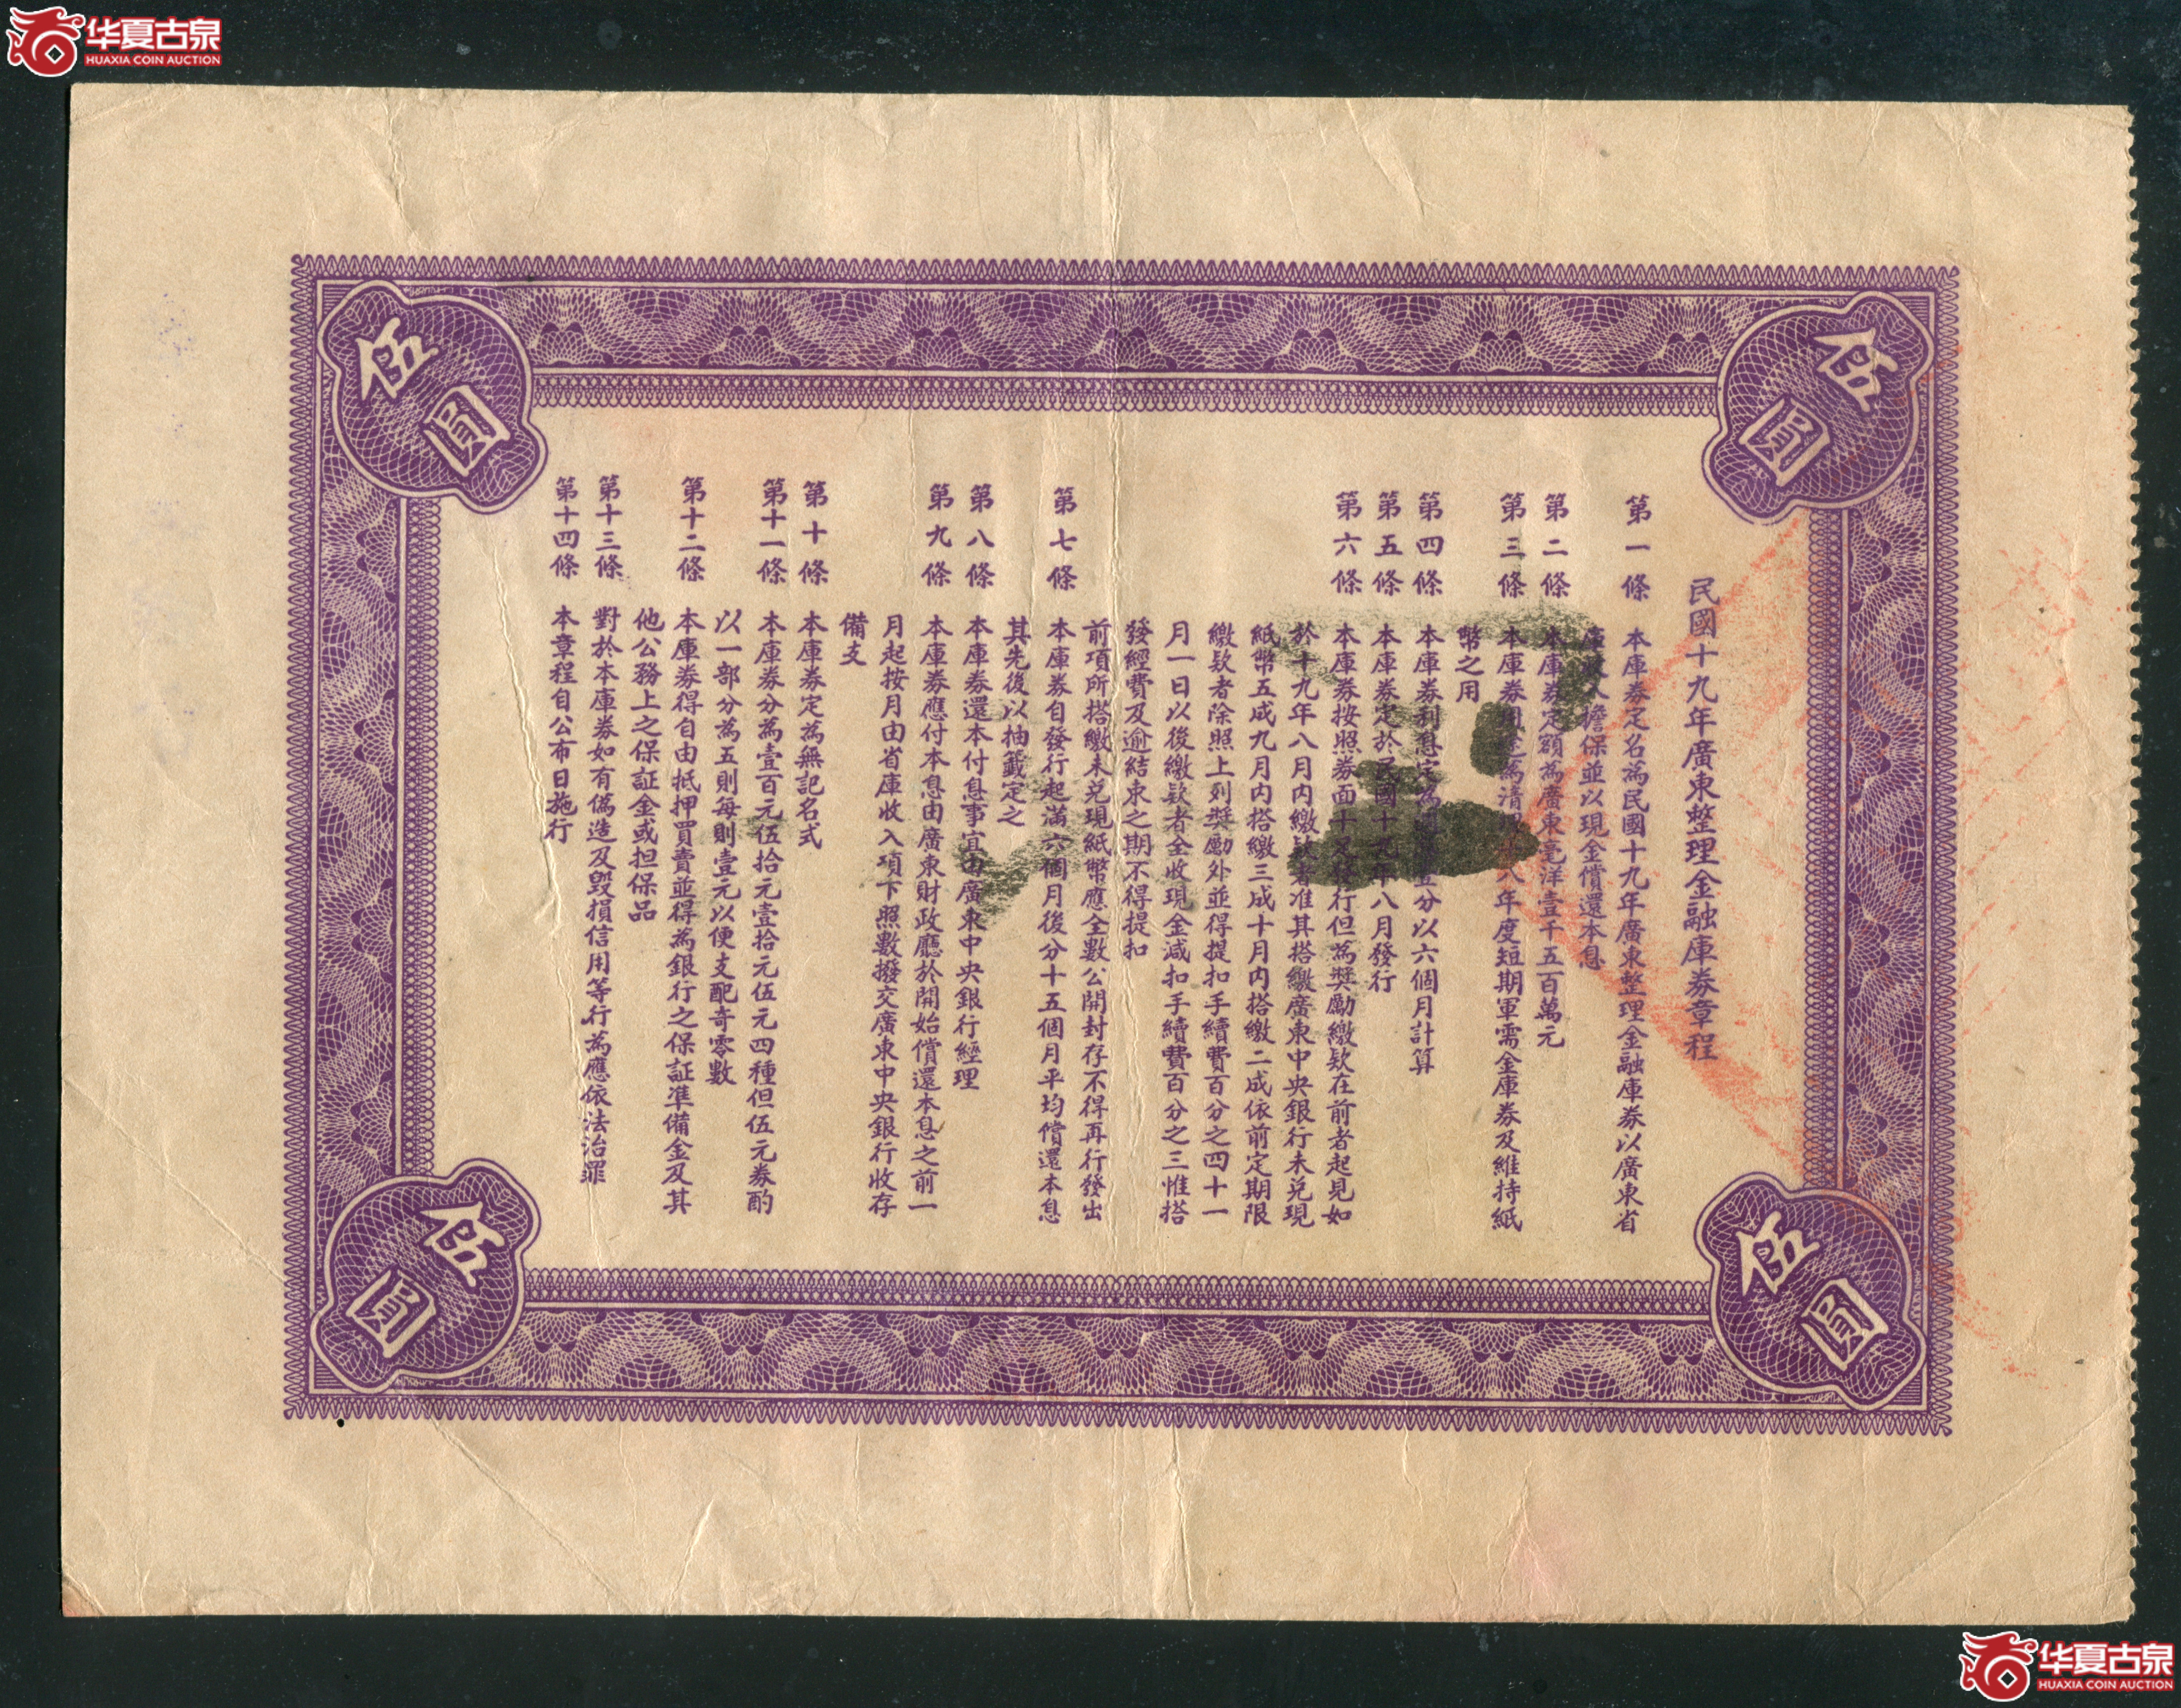 华夏古泉
HUAXIA COIN AUCTION
伍圓
伍圓
民國十九年廣東整理金融庫券章程
第一條 本庫券定名為民國十九年廣東整理金融庫券以廣東省
庫收入擔保並以現金償還本息
第二條 本庫券定額為廣東毫洋壹千五百萬元
第三條 本庫券用途為清八年度短期軍需金庫券及維持紙
幣之用
第四條 本庫券利息定為五分以六個月計算
第五條 本庫券定於民國十九年八月發行
第六條 本庫券按照券面十足發行但為獎勵繳欵在前者起見如
於十九年八月內繳欵者准其搭繳廣東中央銀行未兌現
紙幣五成九月內搭繳三成十月內搭繳二成依前定期限
繳欵者除照上列獎勵外並得提扣手續費百分之四十一
月一日以後繳欵者全收現金減扣手續費百分之三惟搭
發經費及逾結束之期不得提扣
前項所搭繳未兌現紙幣應全數公開封存不得再行發出
第七條 本庫券自發行起滿六個月後分十五個月平均償還本息
其先後以抽籤定之
第八條 本庫券還本付息事宜由廣東中央銀行經理
第九條 本庫券應付本息由廣東財政廳於開始償還本息之前一
月起按月由省庫收入項下照數撥交廣東中央銀行收存
備支
第十條 本庫券定為無記名式
第十一條 本庫券分為壹百元伍拾元壹拾元伍元四種但伍元券酌
以一部分為五則每則壹元以便支配奇零數
第十二條 本庫券得自由抵押買賣並得為銀行之保証準備金及其
他公務上之保証金或担保品
第十三條 對於本庫券如有偽造及毀損信用等行為應依法治罪
第十四條 本章程自公布日施行
伍圓
伍圓
华夏古泉
HUAXIA COIN AUCTION